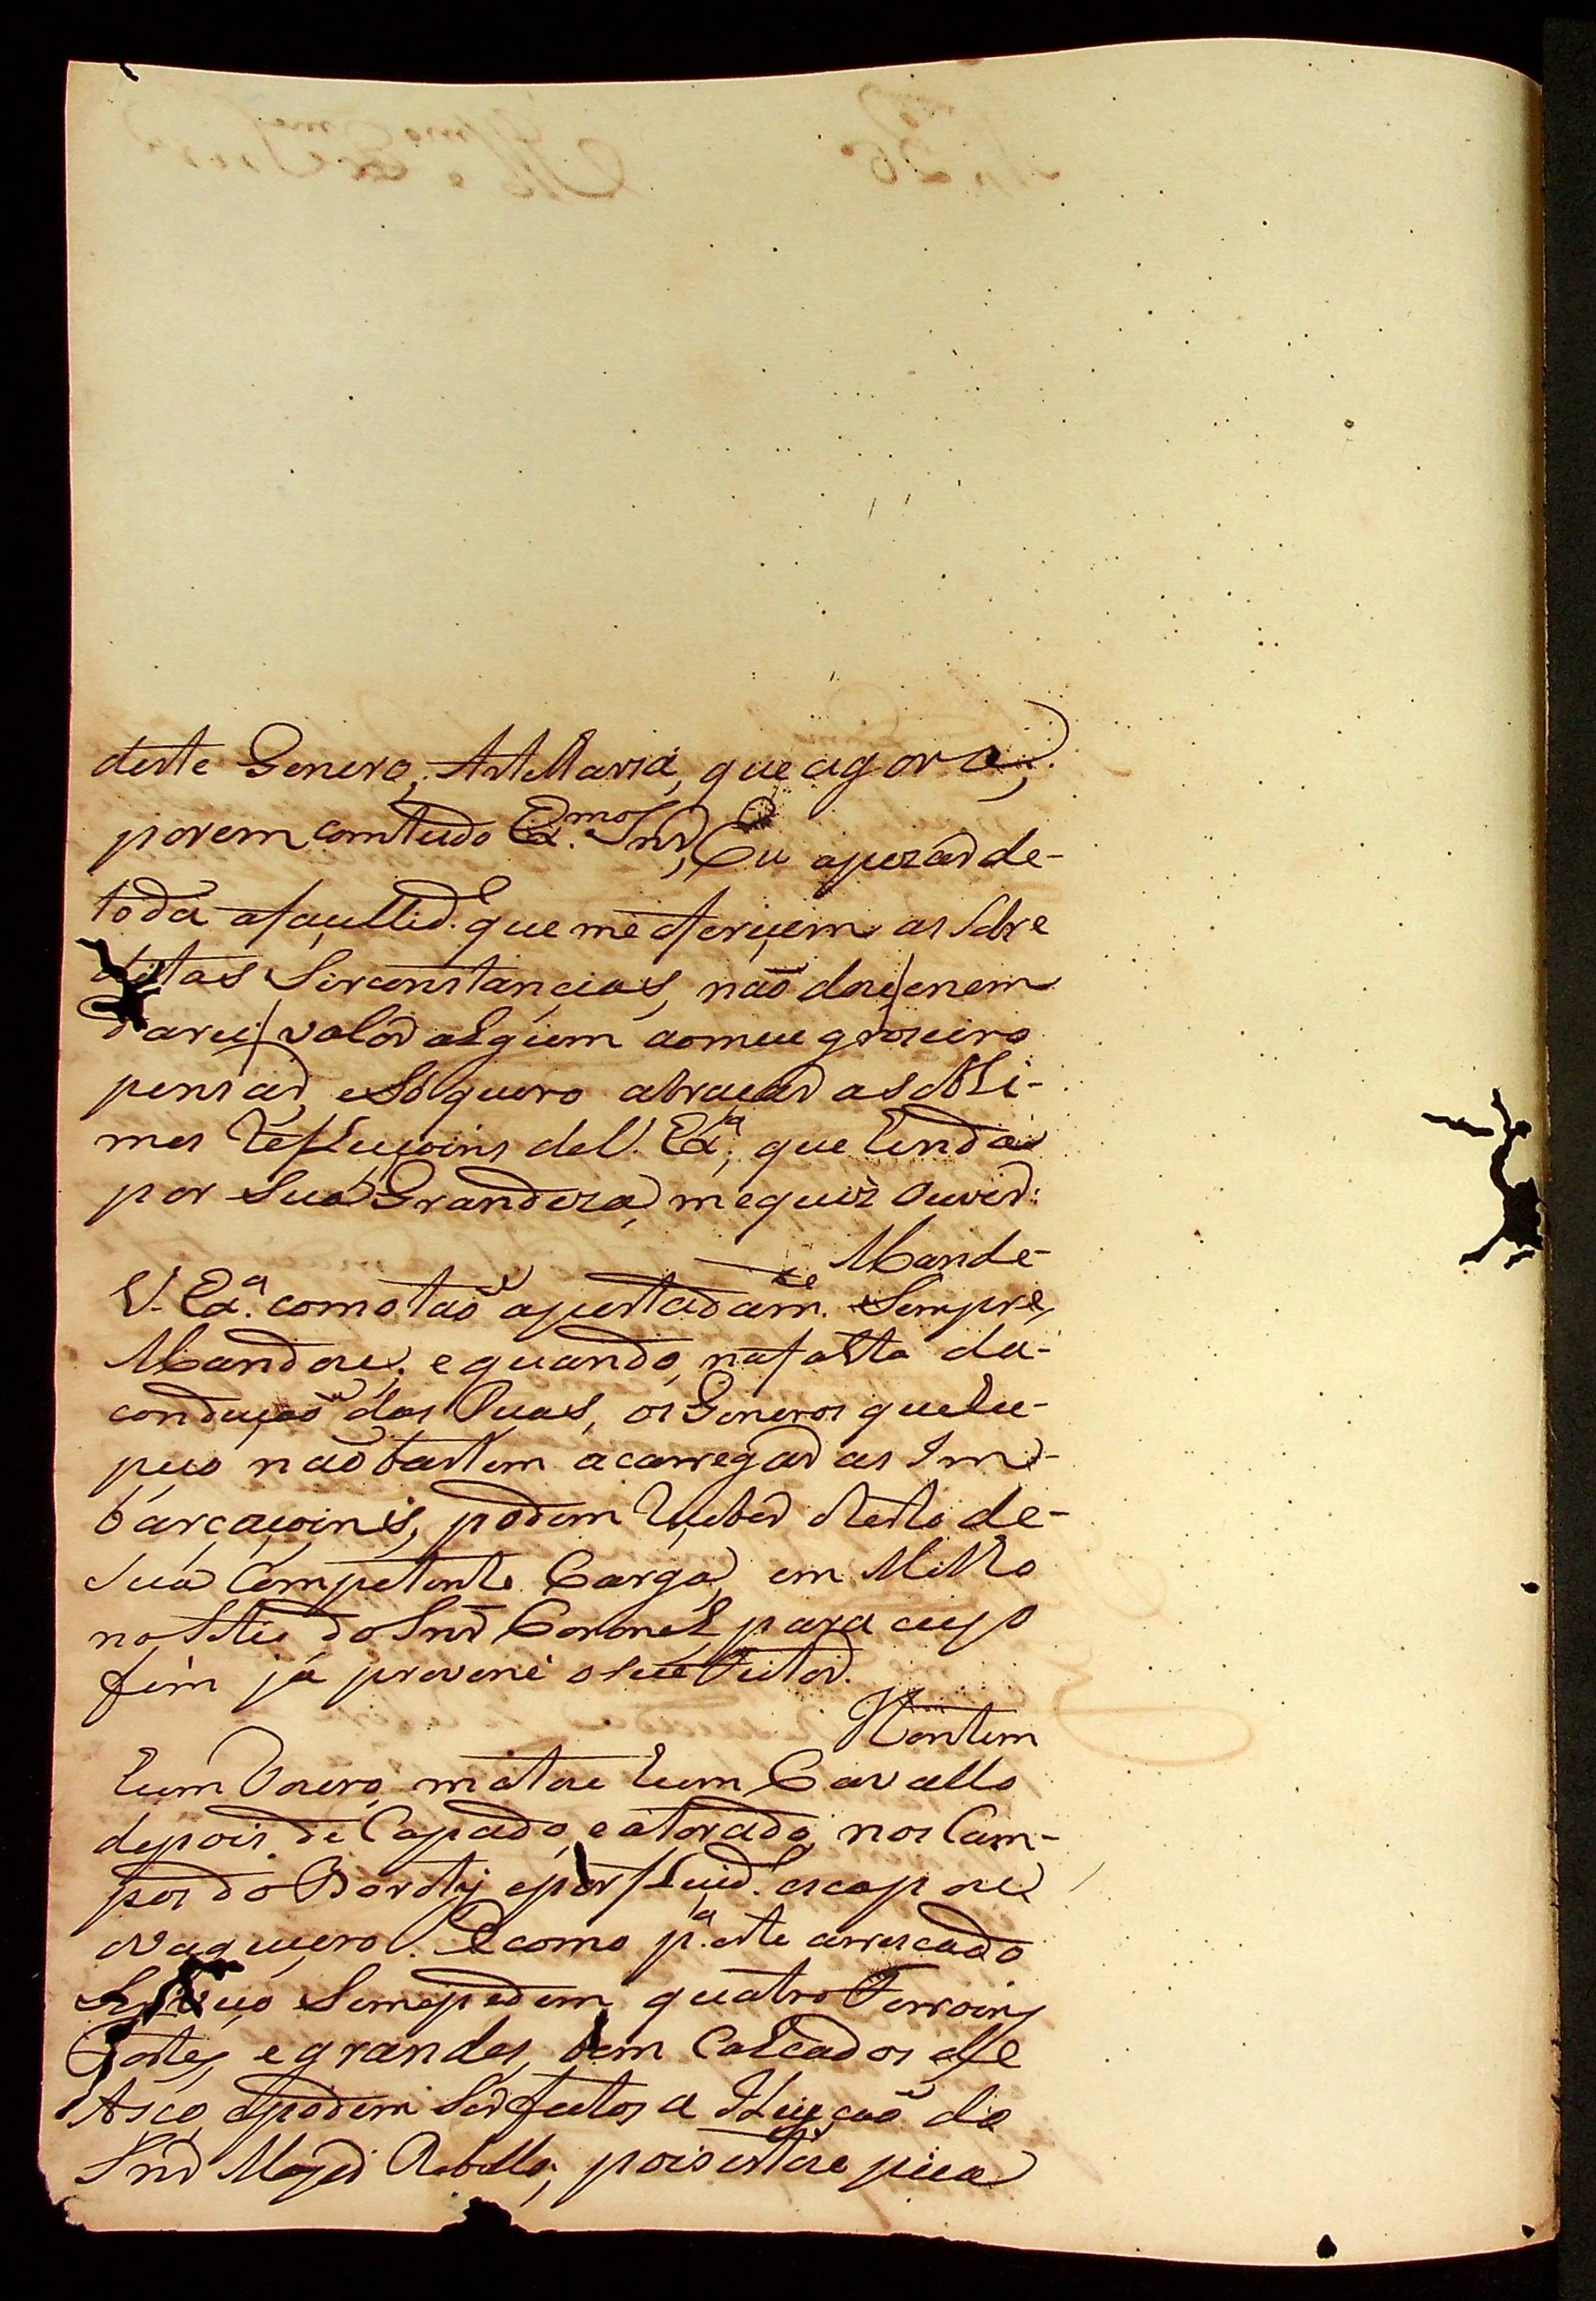 deste Genero, Artelharia, que agora;
porem comtudo Ex.mo Snr, Eu apezar de-
toda afacullid.e que me ofereçem as Sobre
ditas Sirconstançias, não dou /enem
darei/ valor algum aomeu groseiro
pensar, eSó quero abraçar as
mes Refleçoins deV. Exª, que
por Sua Grandeza, mequiz ouvir:
Mande-
V. Exª. como tão apertadam.te Sempre,
Mandou, e quando, nafalta da-
condução das Ruas, os Generos que hu-
peço não bastem acarregar as Im-
barcaçoins, podem Reçeber oResto de-
Sua Competente Carga, em Milho
no Sitio do Snr Coronel, para cujo
fim já preveni oseu Feitor.
Hontem
hum Touro, matou hum Cavallo
depois de Capado, e atorado, nos Cam-
pos do e por filiçid.e escapou
ovaqueiro. E como pª. este arriscado
Serviço Semepedem, quatro Ferroins
Fortes, e grandes, bem Calçados de
Asço, e podem Ser feitos a Eleição do
Snr Major Rebello, pois estou